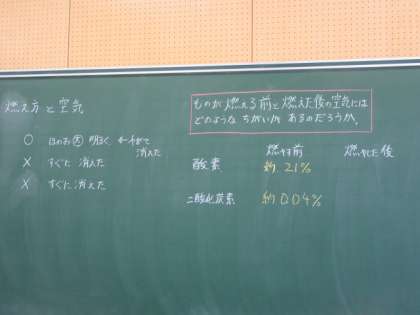 燃え方と空気
○ ほのお大 明るく ←やがて
消えた
× すぐに消えた
× すぐに消えた
ものが燃える前と燃えた後の空気には
どのような ちがいが あるのだろうか。
燃やす前 燃やした後
酸素 約 21%
二酸化炭素 約0.04%